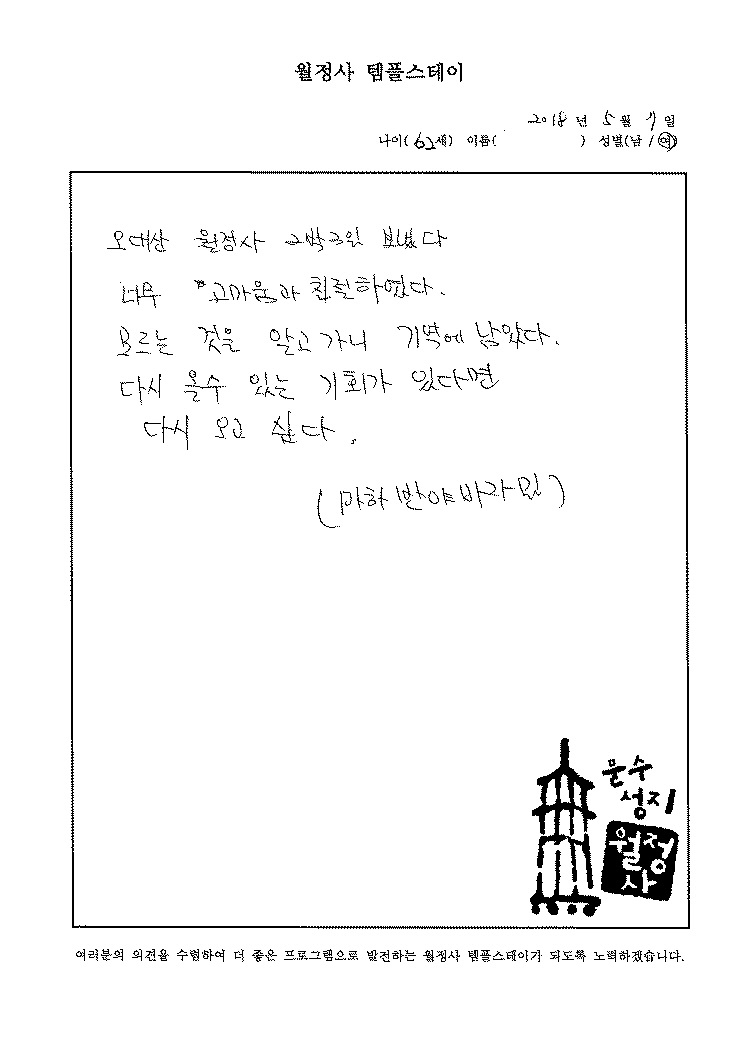 월정사 템플스테이
2018년 5월 7일
나이(62세) 이름( ) 성별(남/여)
오대산 월정사 2박3일 보냈다
너무 고마움과 친절하였다.
모르는 것을 알고 가니 기억에 남았다.
다시 올수 있는 기회가 있다면
다시 오고 싶다.
(마하반야바라밀)
문수
성지
월정
사
여러분의 의견을 수렴하여 더 좋은 프로그램으로 발전하는 월정사 템플스테이가 되도록 노력하겠습니다.